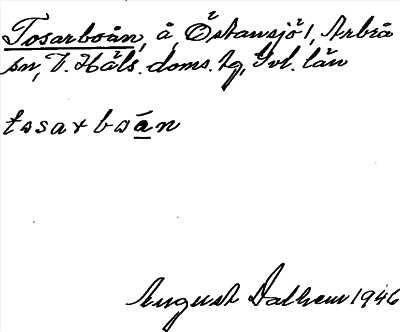 Tosarboån, å, Östansjö 1, Arbrå
sn, V. Häls. doms. tg, Gvl. län
tosarboån
August Dalhem 1946